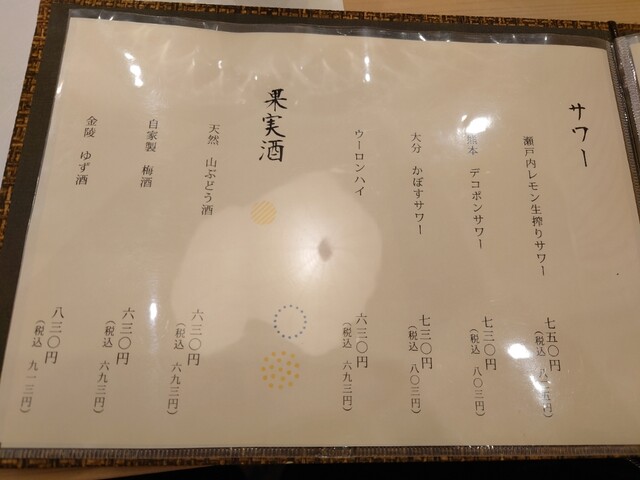 サワー
瀬戸内レモン生搾りサワー
七五〇円
(税込 八二五円)
熊本 デコポンサワー
七三〇円
(税込 八〇三円)
大分 かぼすサワー
七三〇円
(税込 八〇三円)
ウーロンハイ
六三〇円
(税込 六九三円)
果実酒
天然 山ぶどう酒
六三〇円
(税込 六九三円)
自家製 梅酒
六三〇円
(税込 六九三円)
金陵 ゆず酒
八三〇円
(税込 九一三円)